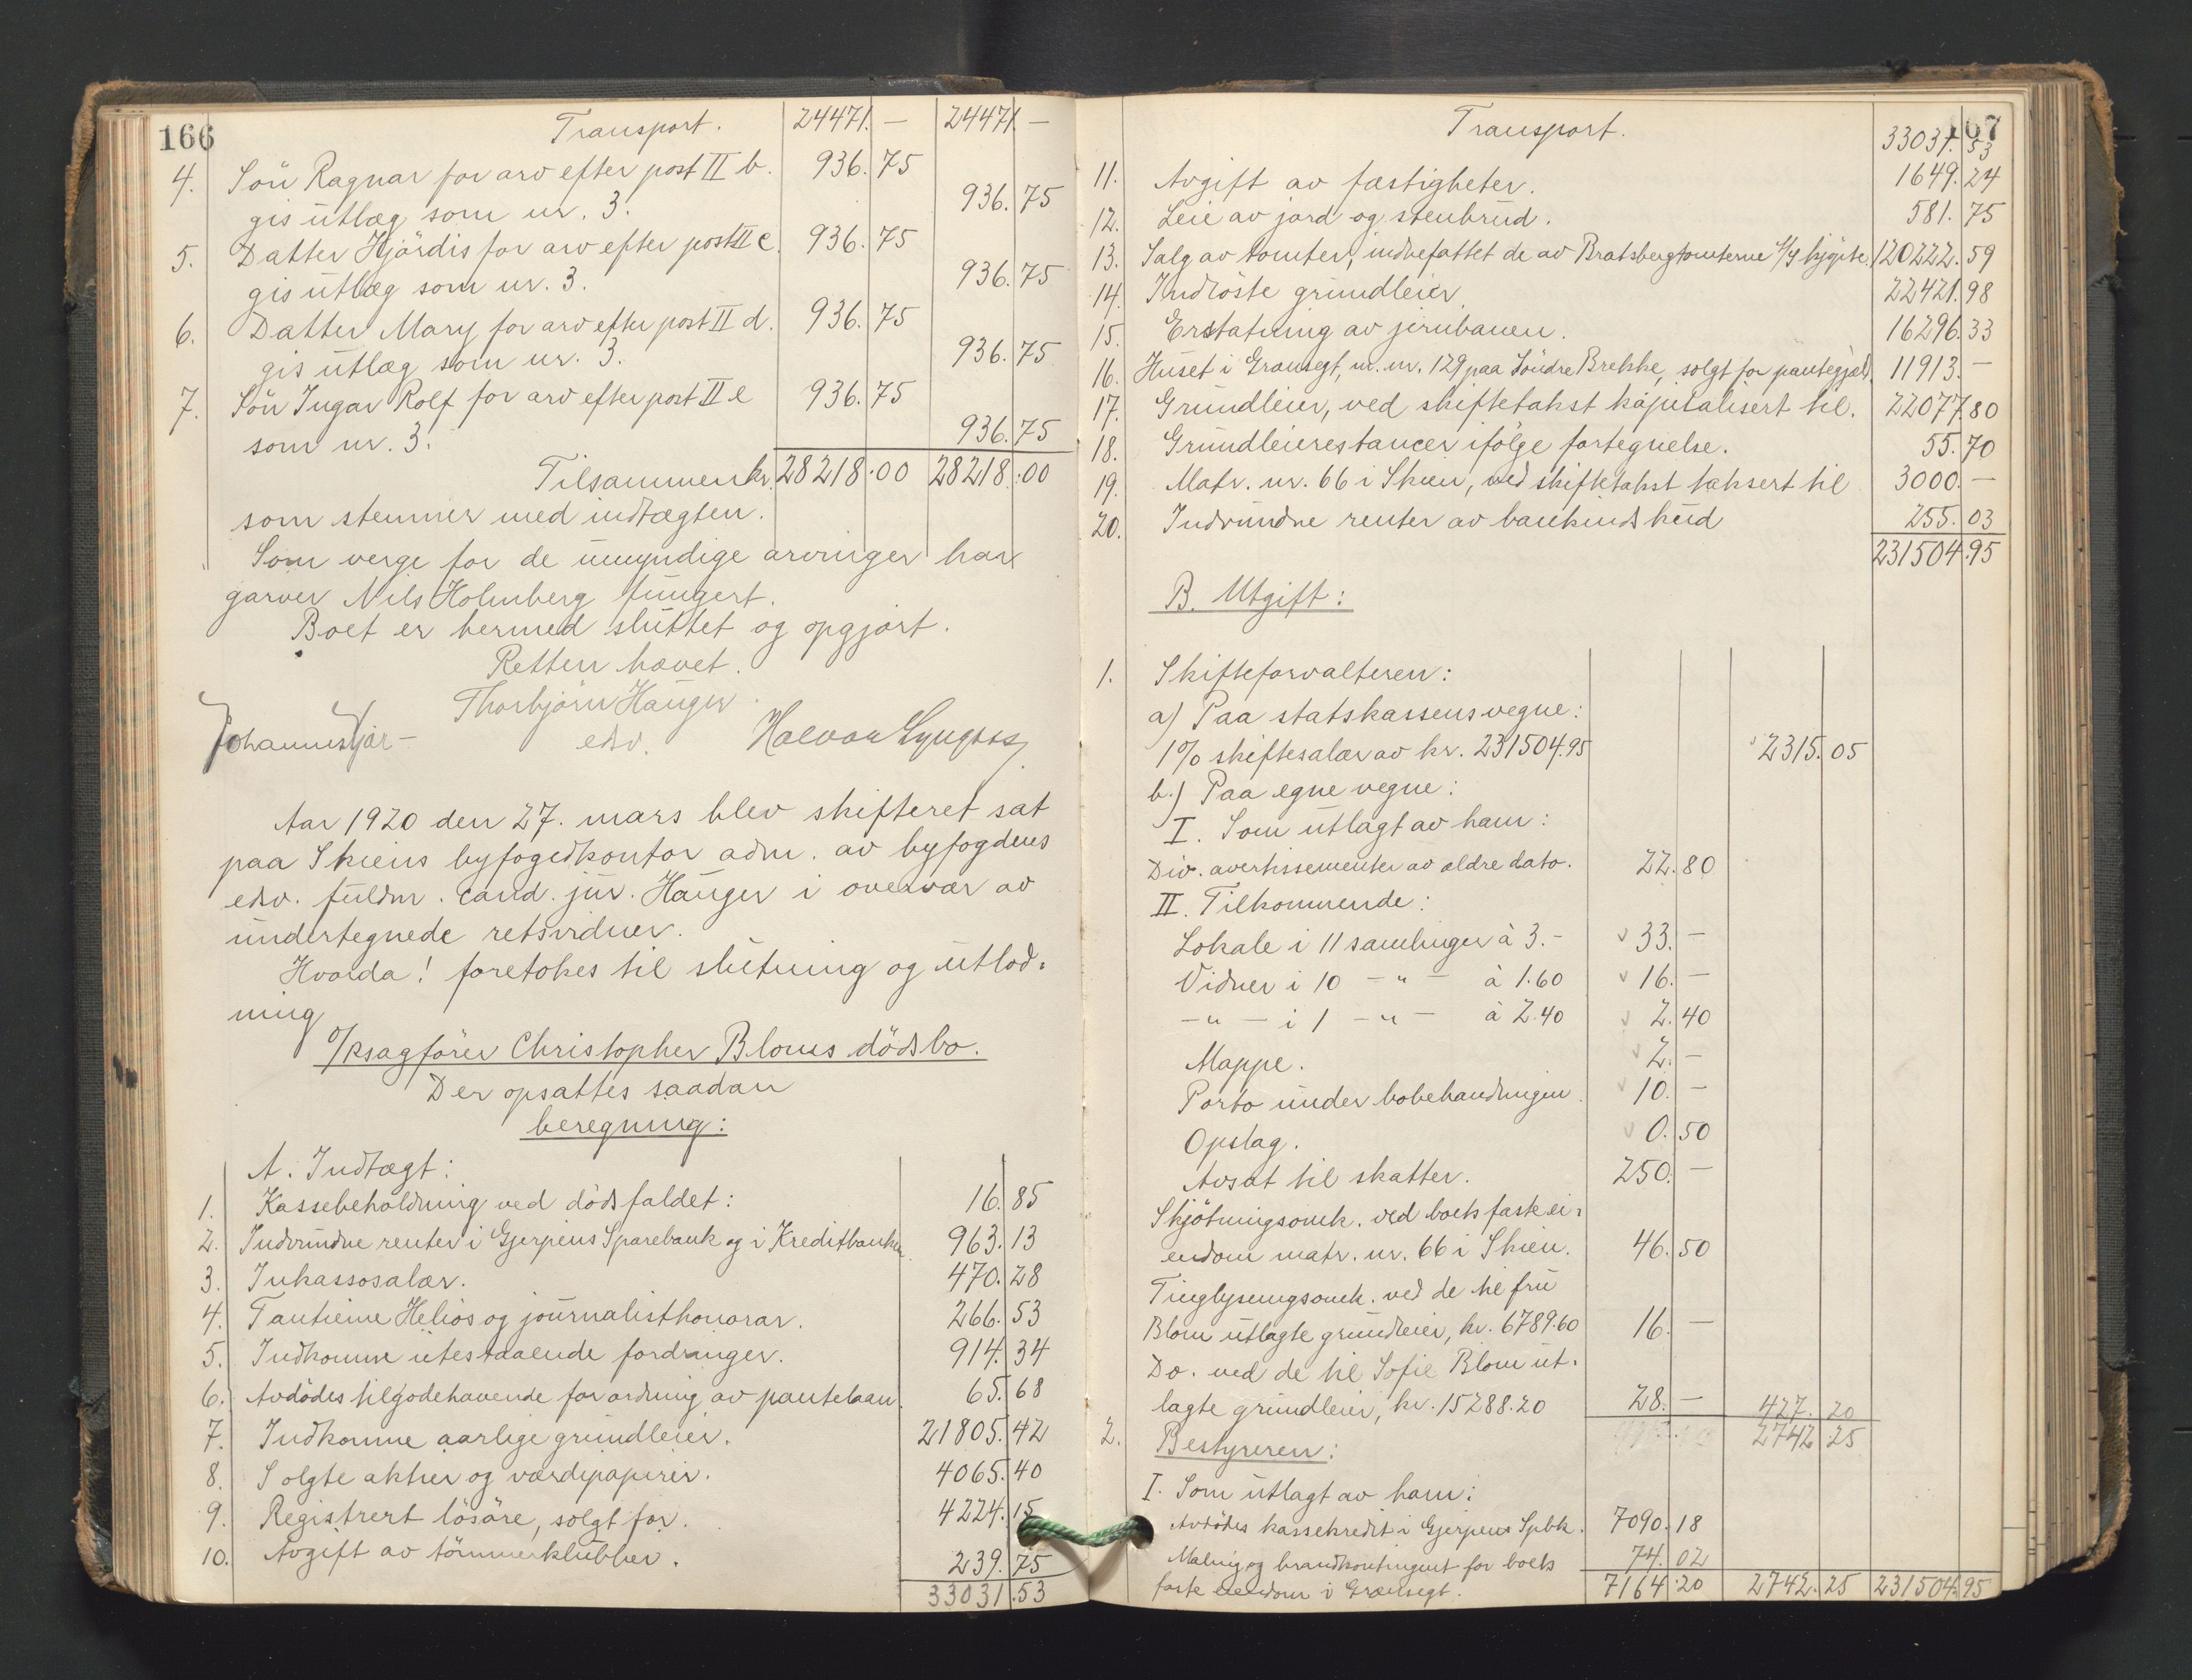 166
Transport. 24471. — 24471. —
4. Sön Ragnar for arv efter post II b. 936. 75
gis utlæg som nr. 3. 936. 75
5. Datter Hjördis for arv efter post II c. 936. 75
gis utlæg som nr. 3. 936. 75
6. Datter Mary for arv efter post II d. 936. 75
gis utlæg som nr. 3. 936. 75
7. Sön Ingar Rolf for arv efter post II e 936. 75
som nr. 3. 936. 75
Tilsammen kr. 28218.00 28218.00
som stemmer med indtægten.
Som verge for de umyndige arvinger har
garver Nils Holmberg fungert.
Boet er hermed sluttet og opgjort.
Retten hævet.
Thorbjörn Hauger
edsv.
Aar 1920 den 27. mars blev skifteret sat
paa Skiens byfogedkontor adm. av byfogdens
edsv. fuldm. cand. jur. Hauger i overvær av
undertegnede retsvidner.
Hvorda! foretokes til slutning og utlod-
ning
o/rsagförer Christopher Bloms dödsbo.
Der opsattes saadan
beregning:
A. Indtægt:
1. Kassebeholdning ved dödsfaldet: 16. 85
2. Indvundne renter i Gjerpens Sparebank og i Kreditbanken. 963. 13
3. Inkassosalær. 470. 28
4. Tantieme Helios og journalisthonorar. 266. 53
5. Indkomne utestaaende fordringer. 914. 34
6. Avdödes tilgodehavende for ordning av pantelaan. 65. 68
7. Indkomne aarlige grundleier. 21805. 42
8. Solgte aktier og værdipapirer. 4065. 40
9. Registrert lösöre, solgt for. 4224. 15
10. Avgift av tömmerklubber. 239. 75
33031.53
167
Transport. 33031. 53
11. Avgift av fæstigheter. 1649. 24
12. Leie av jord og stenbrud. 581. 75
13. Salg av tomter, indbefattet de av Bratsbergtomterne A/S kjöpte. 120222. 59
14. Indlöste grundleier. 22421. 98
15. Erstatning av jernbanen. 16296. 33
16. Huset i Grænsegt, m. nr. 129 paa Söndre Brekke, solgt for pantegjæld. 11913. —
17. Grundleier, ved skiftetakst kapitalisert til. 22077. 80
18. Grundleierestancer ifölge fortegnelse. 55. 70
19. Matr. nr. 66 i Skien, ved skiftetakst taksert til 3000. —
20. Indvundne renter av bankindskud 255. 03
231504.95
B. Utgift:
1. Skifteforvalteren:
a) Paa statskassens vegne:
1% skiftesalær av kr. 231504.95 2315. 05
b.) Paa egne vegne:
I. Som utlagt av ham:
Div. avertissementer av ældre dato. 22. 80
II. Tilkommende:
Lokale i 11 samlinger à 3.- 33. —
Vidner i 10 — " — à 1.60 16. —
— " — i 1 — " — à 2.40 2. 40
Mappe. 2. —
Porto under bobehandlingen. 10. —
Opslag. 0. 50
Avsat til skatter. 250. —
Skjötningsomk. ved boets faste ei-
endom matr. nr. 66 i Skien. 46. 50
Tinglysningsomk. ved de til fru
Blom utlagte grundleier, kr. 6789.60 16. —
Do. ved de til Sofie Blom ut-
lagte grundleier, kr. 15288.20 28. — 427. 20
2742 25
2. Bestyreren:
I. Som utlagt av ham:
Avdödes kassekredit i Gjerpens Spbk. 7090. 18
Maling og brandkontingent for boets 74. 02
faste eiendom i Grænsegt. 7164.20 2742. 25 231504.95